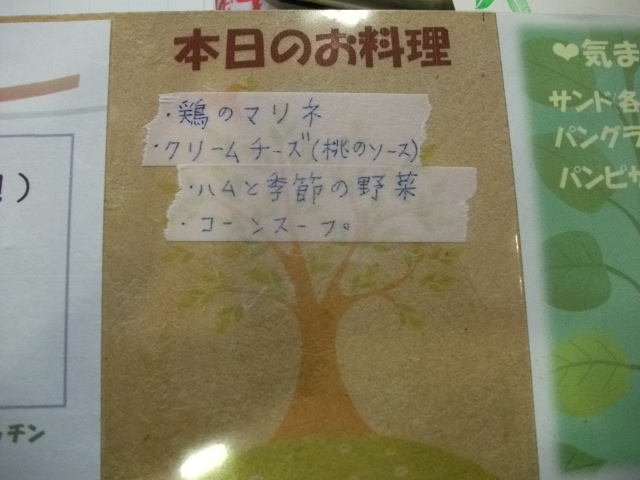 本日のお料理
・鶏のマリネ
・クリームチーズ(桃のソース)
・ハムと季節の野菜
・コーンスープ。
!)
ッチン
♥気ま
サンド(各
パングラ
パンピザ